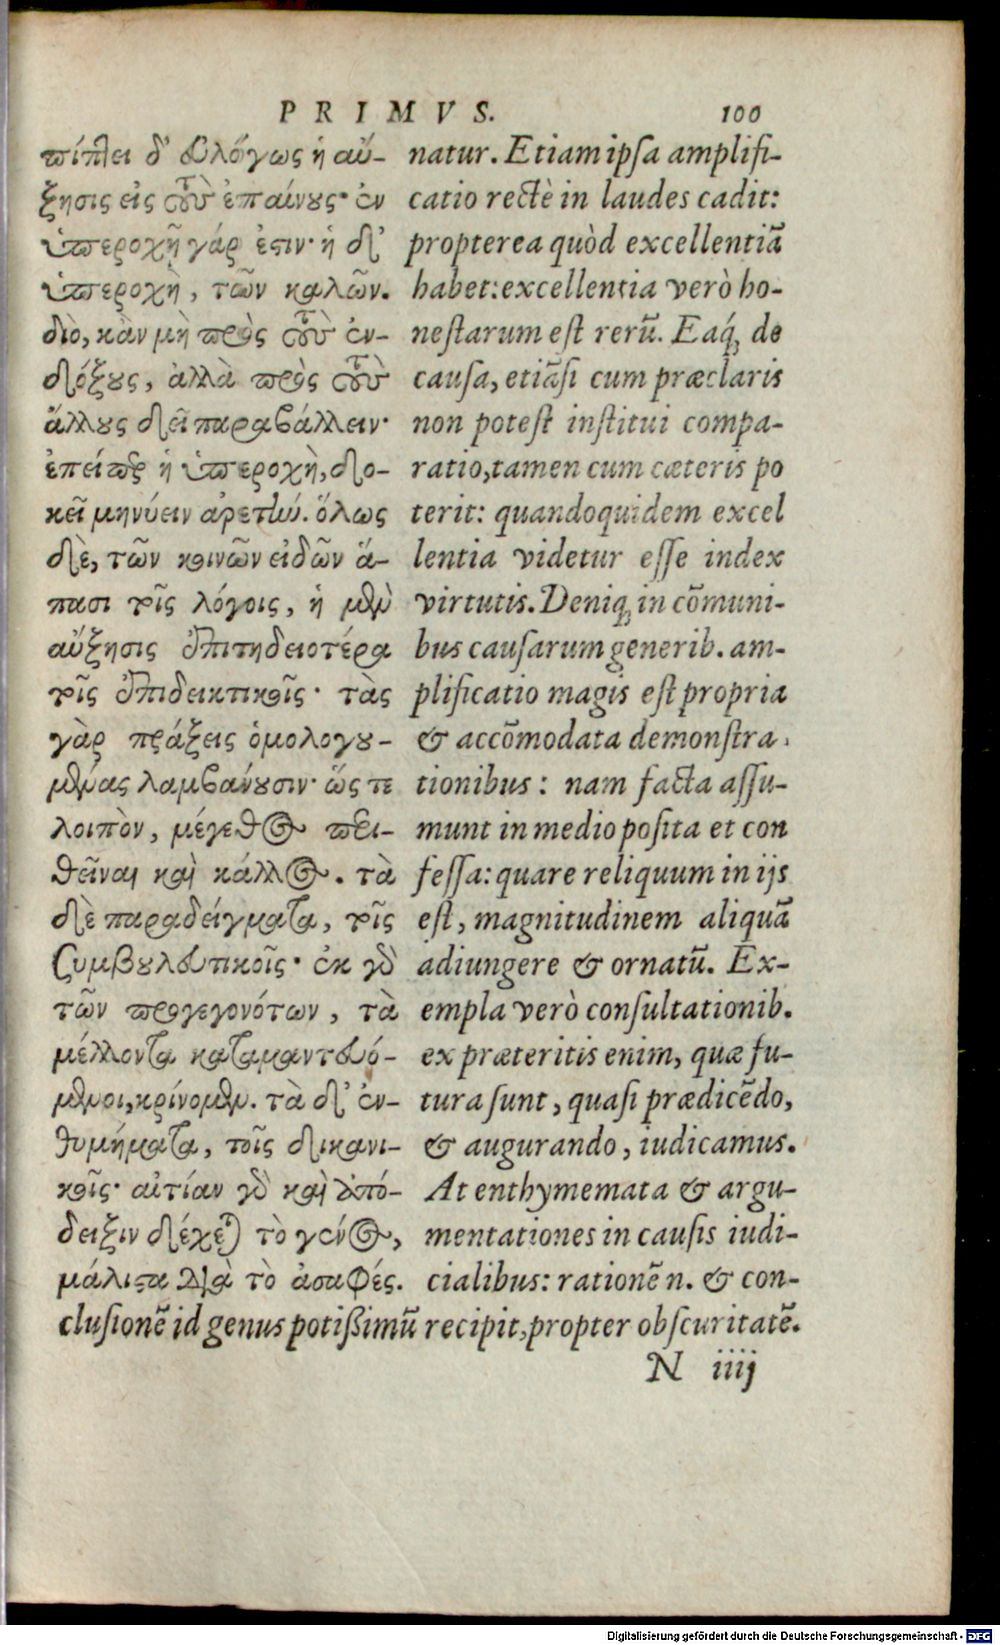 PRIMVS. 100
πίπτει δ' εὐλόγως ἡ αὔ-
ξησις εἰς τοὺς ἐπαίνους· ἐν
ὑπεροχῇ γάρ ἐστιν· ἡ δ'
ὑπεροχὴ, τῶν καλῶν.
διὸ, κἂν μὴ πρὸς τοὺς ἐν-
δόξους, ἀλλὰ πρὸς τοὺς
ἄλλους δεῖ παραβάλλειν·
ἐπείπερ ἡ ὑπεροχὴ, δο-
κεῖ μηνύειν ἀρετήν. ὅλως
δὲ, τῶν κοινῶν εἰδῶν ἅ-
πασι τοῖς λόγοις, ἡ μὲν
αὔξησις ἐπιτηδειοτέρα
τοῖς ἐπιδεικτικοῖς· τὰς
γὰρ πράξεις ὁμολογου-
μένας λαμβάνουσιν· ὥς τε
λοιπὸν, μέγεθος περι-
θεῖναι καὶ κάλλος. τὰ
δὲ παραδείγματα, τοῖς
συμβουλευτικοῖς· ἐκ γὰρ
τῶν προγεγονότων, τὰ
μέλλοντα καταμαντευό-
μενοι, κρίνομεν. τὰ δ' ἐν-
θυμήματα, τοῖς δικανι-
κοῖς· αἰτίαν γὰρ καὶ ἀπό-
δειξιν δέχεται τὸ γενόμενος,
μάλιστα διὰ τὸ ἀσαφές.
natur. Etiam ipsa amplifi-
catio rectè in laudes cadit:
propterea quòd excellentiã
habet: excellentia verò ho-
nestarum est rerũ. Eaq́; de
causa, etiãsi cum præclaris
non potest institui compa-
ratio, tamen cum cæteris po
terit: quandoquidem excel
lentia videtur esse index
virtutis. Deniq; in cõmuni-
bus causarum generib. am-
plificatio magis est propria
& accõmodata demonstra-
tionibus: nam facta assu-
munt in medio posita et con
fessa: quare reliquum in ijs
est, magnitudinem aliquã
adiungere & ornatũ. Ex-
empla verò consultationib.
ex præteritis enim, quæ fu-
tura sunt, quasi prædicẽdo,
& augurando, iudicamus.
At enthymemata & argu-
mentationes in causis iudi-
cialibus: rationẽ n. & con-
clusionẽ id genus potißimũ recipit, propter obscuritatẽ.
N iiij
Digitalisierung gefördert durch die Deutsche Forschungsgemeinschaft - DFG